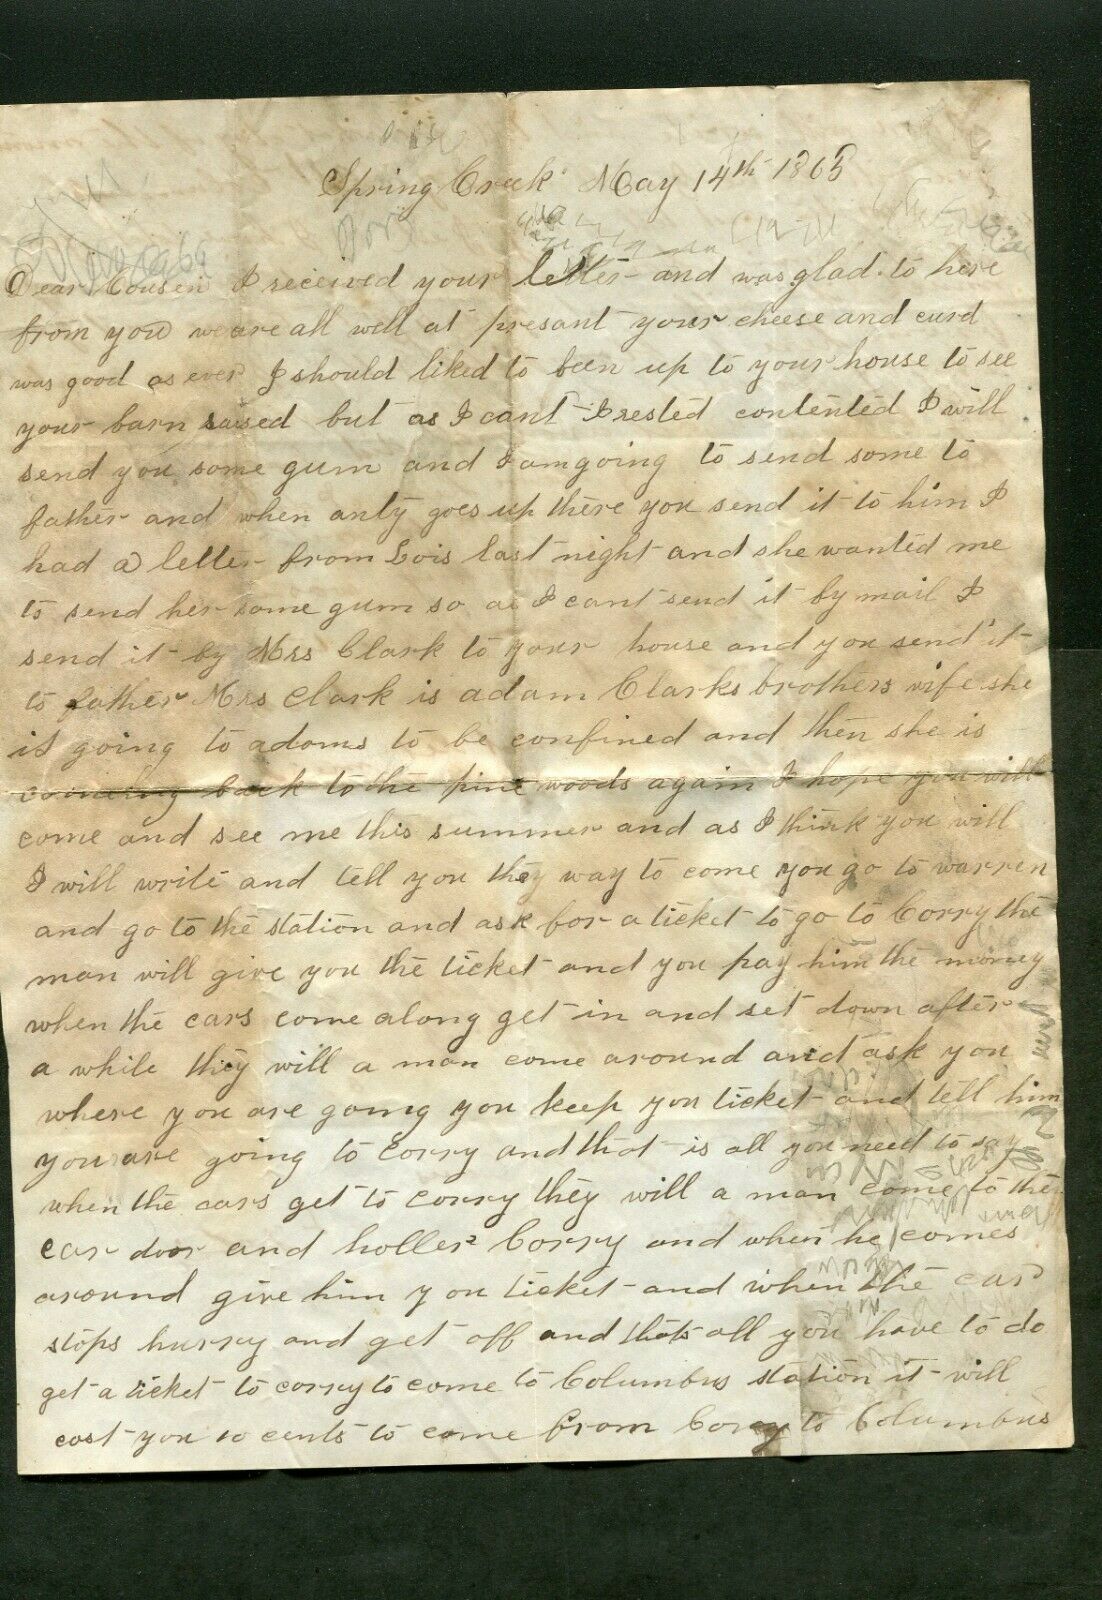 Spring Creek May 14th 1865
Dear Cousin I received your letter and was glad to here
from you we are all well at presant your cheese and curd
was good as ever I should liked to been up to your house to see
your barn raised but as I cant I rested contented I will
send you some gum and I am going to send some to
father and when anty goes up there you send it to him I
had a letter from Lois last night and she wanted me
to send her some gum so as I cant send it by mail I
send it by Mrs Clark to your house and you send it
to father Mrs Clark is adam Clarks brothers wife she
is going to adams to be confined and then she is
comeing back to the pine woods again I hope you will
come and see me this summer and as I think you will
I will write and tell you they way to come you go to warren
and go to the station and ask for a ticket to go to Corry the
man will give you the ticket and you pay him the money
when the cars come along get in and set down after
a while they will a man come around and ask you
where you are going you keep you ticket and tell him
you are going to Corry and that is all you need to say
when the cars get to corry they will a man come to the
car door and holler Corry and when he comes
around give him you ticket and when the car
stops hurry and get off and thats all you have to do
get a ticket to corry to come to Columbus station it will
cost you 10 cents to come from Corry to Columbus